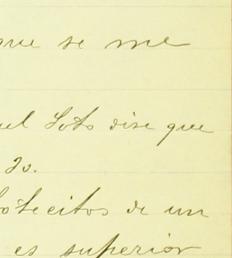 que se me
uel Soto dise que
20.
botecitos de un
es superior